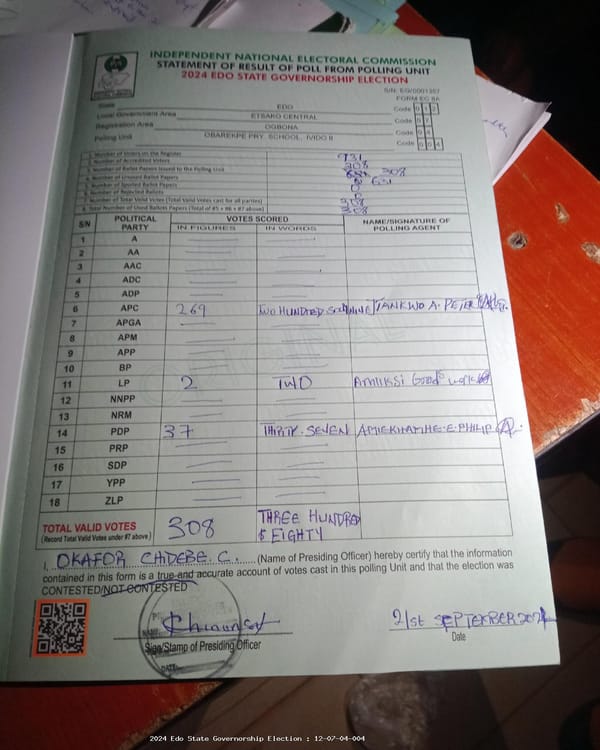 INDEPENDENT NATIONAL ELECTORAL COMMISSION
STATEMENT OF RESULT OF POLL FROM POLLING UNIT
2024 EDO STATE GOVERNORSHIP ELECTION
FORM EC 8A
State EDO Code
Local Government Area ETSAKO CENTRAL Code
Registration Area OGBONA Code
Polling Unit OBAREKPE PRY. SCHOOL, IVIDO II Code
1 Number of Voters on the Register 931
2 Number of Accredited Voters 308
3 Number of Ballot Papers Issued to the Polling Unit
4 Number of Unused Ballot Papers
5 Number of Spoiled Ballot Papers 0
6 Number of Rejected Ballots 0
7 Number of Total Valid Votes (Total Valid Votes cast for all parties) 308
8 Total Number of Used Ballots Papers (Total of #5 + #6 + #7 above) 308
SN POLITICAL PARTY VOTES SCORED NAME/SIGNATURE OF POLLING AGENT
IN FIGURES IN WORDS
1 A
2 AA
3 AAC
4 ADC
5 ADP
6 APC 269 TWO HUNDRED TANKWO A. PETER
7 APGA
8 APM
9 APP
10 BP
11 LP 2 TWO
12 NNPP
13 NRM
14 PDP 37 THIRTY-SEVEN PHILIP
15 PRP
16 SDP
17 YPP
18 ZLP
TOTAL VALID VOTES 308 THREE HUNDRED
(Record Total Valid Votes under #7 above) & EIGHTY
I, OKAFOR C. (Name of Presiding Officer) hereby certify that the information
contained in this form is a true and accurate account of votes cast in this polling Unit and that the election was
CONTESTED/NOT CONTESTED
21st SEPTEMBER 2024
Sign/Stamp of Presiding Officer Date
DATE:
2024 Edo State Governorship Election : 12-07-04-004